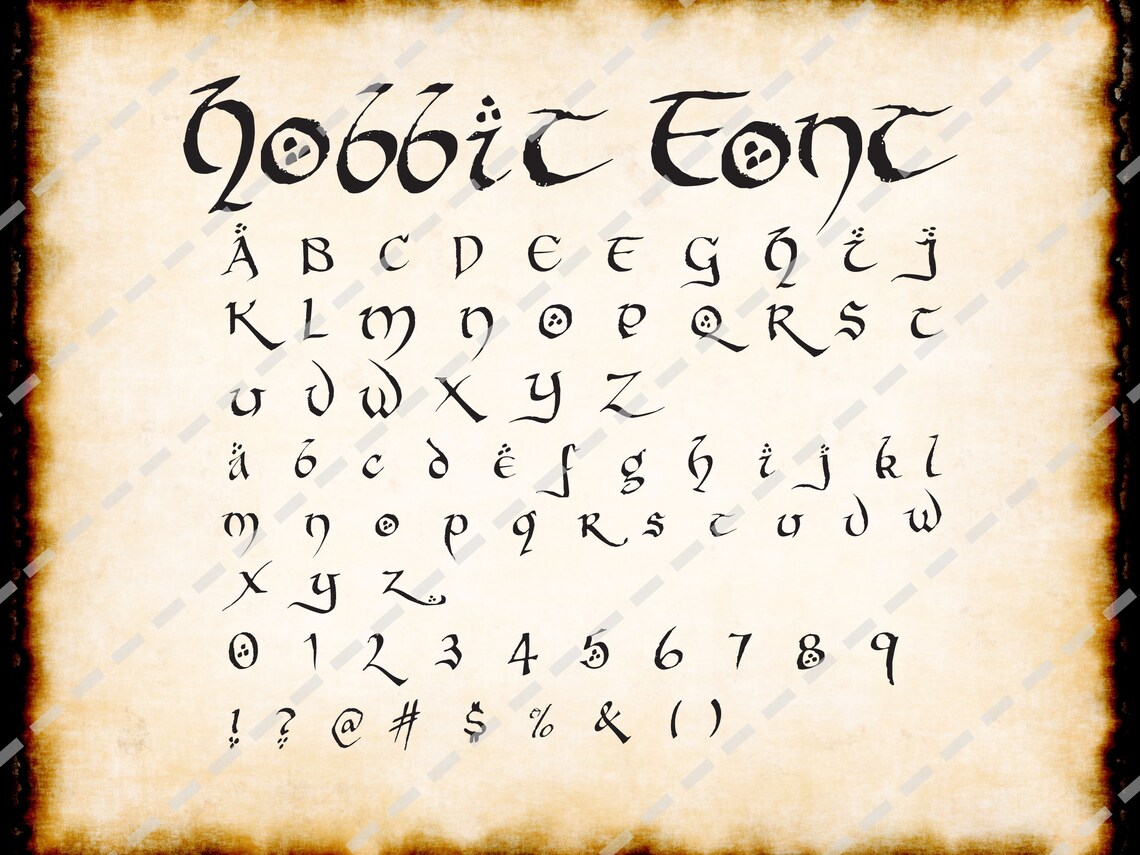 Hobbit Font
A B C D E F G H I J
K L M N O P Q R S T
U V W X Y Z
a b c d e f g h i j k l
m n o p q r s t u v w
x y z
0 1 2 3 4 5 6 7 8 9
! ? @ # $ % & ( )